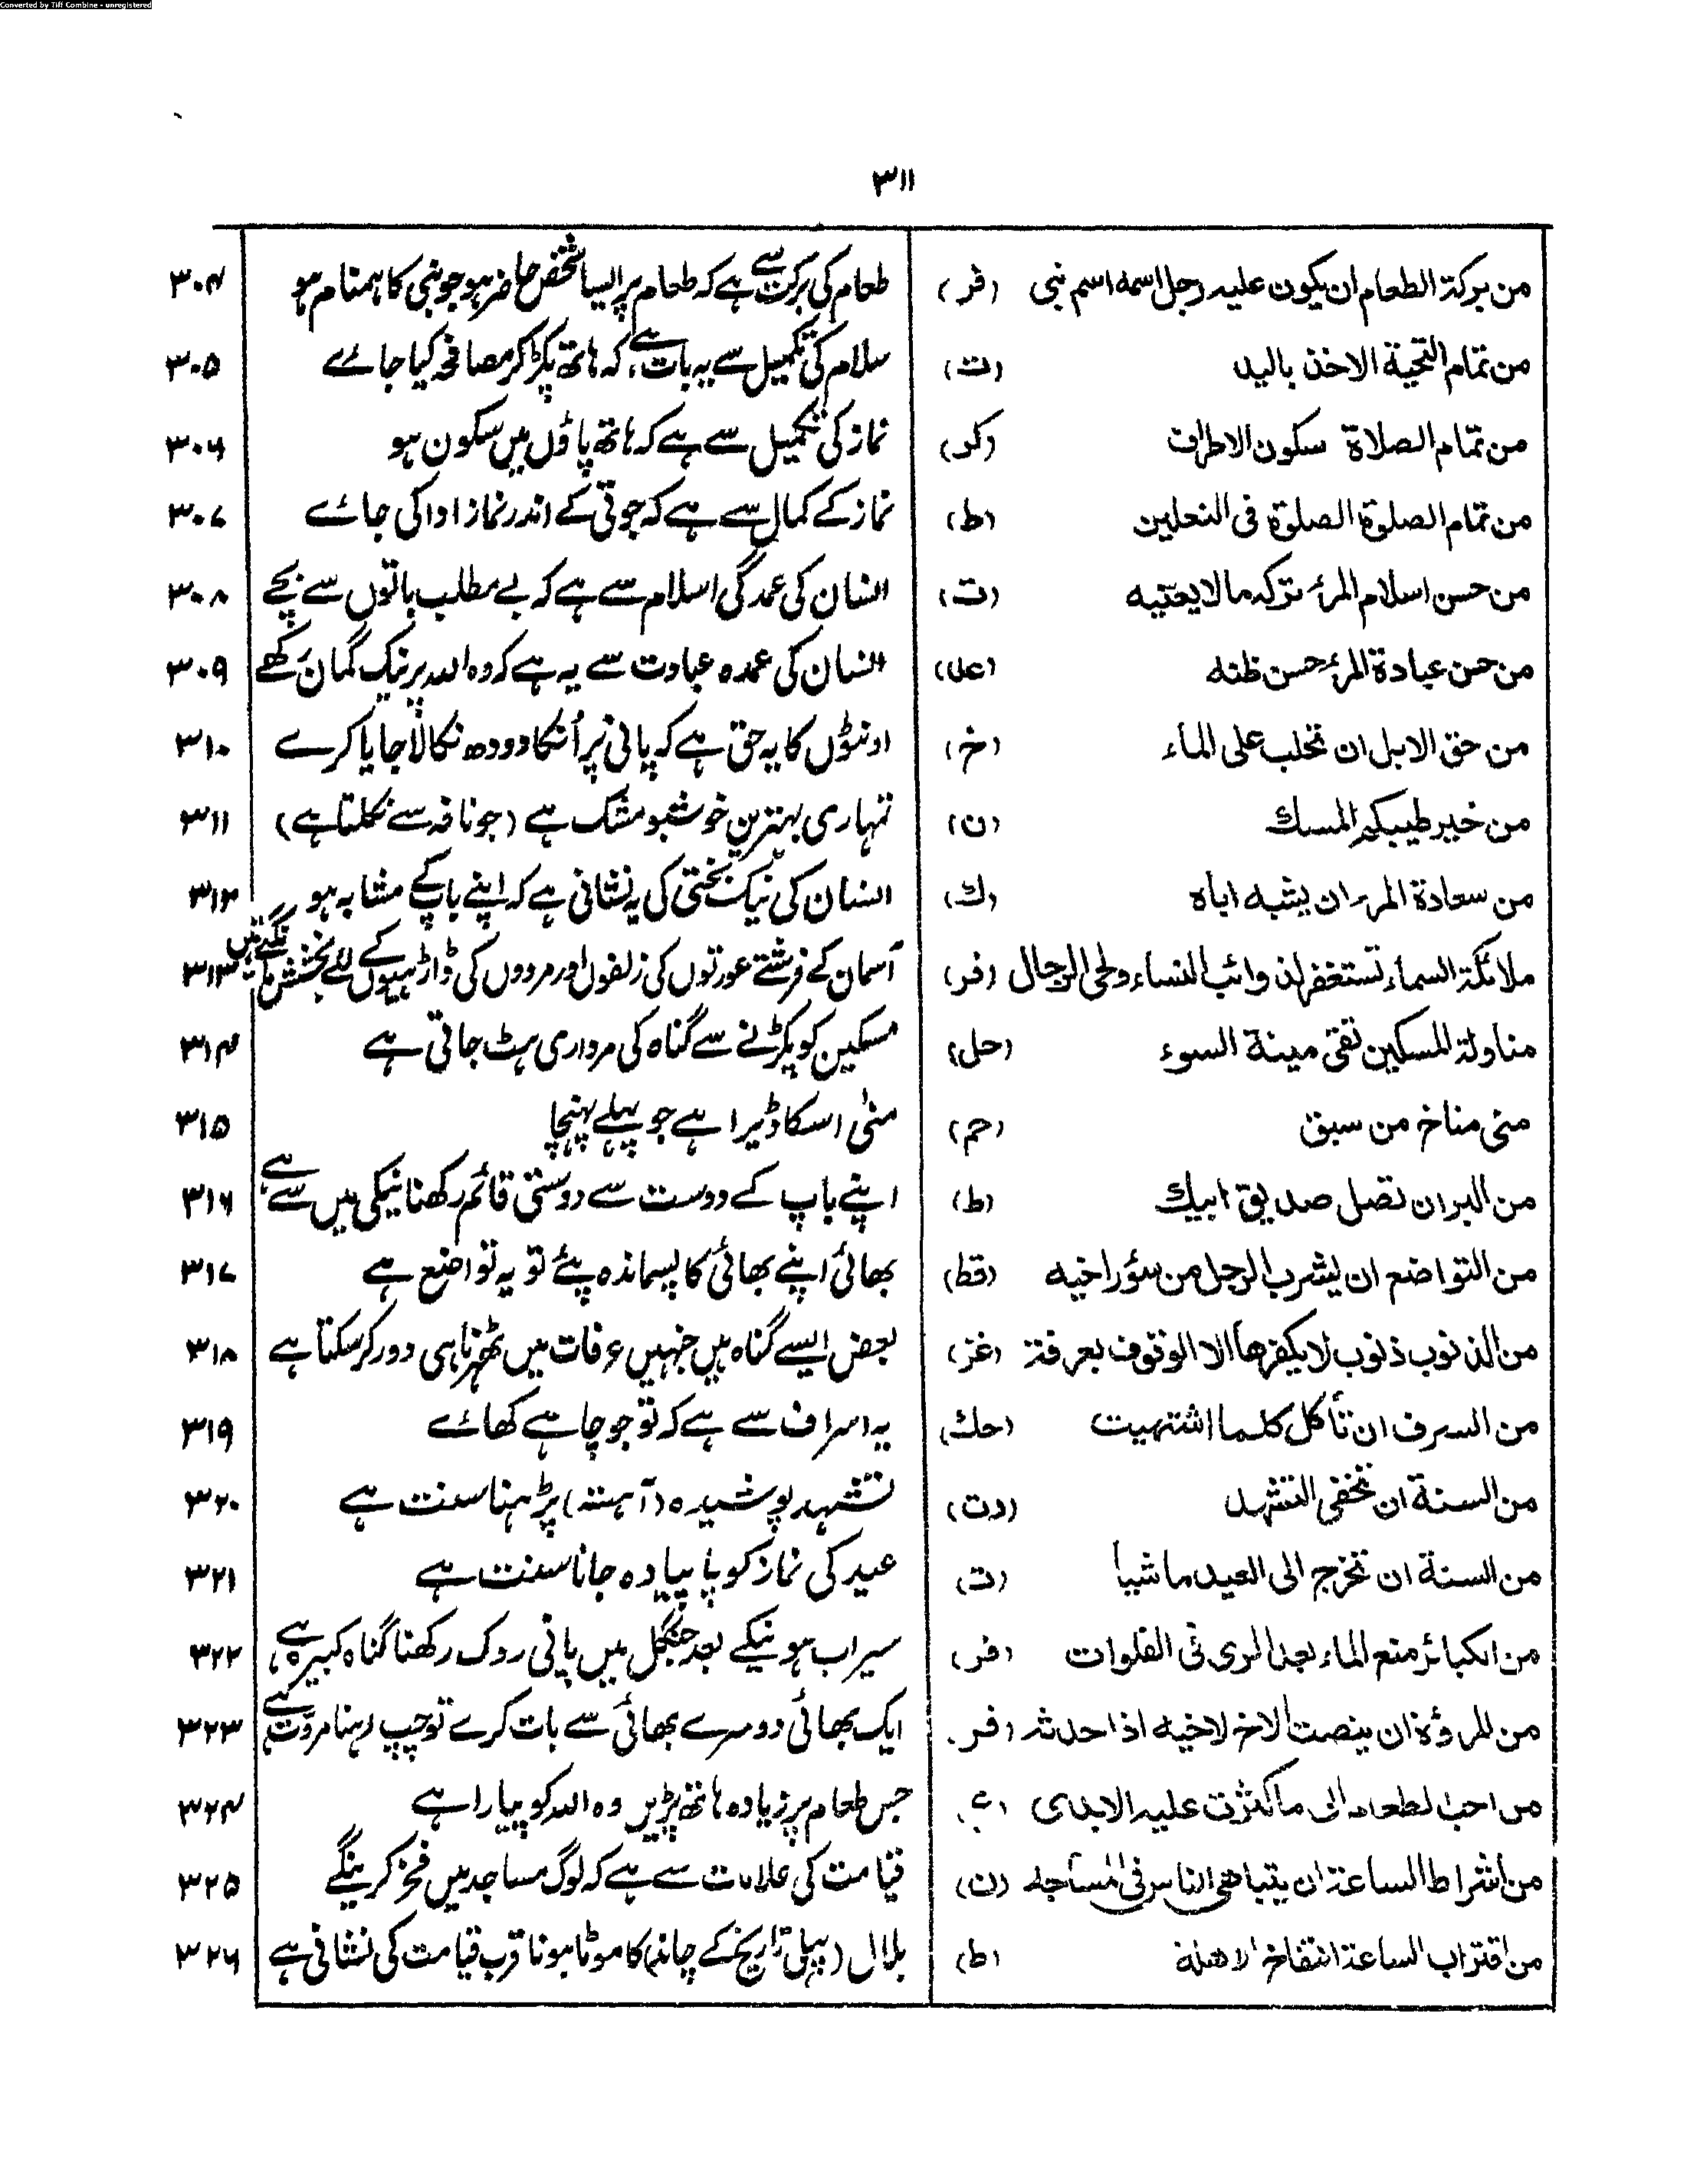 Converted by Tiff Combine - unregistered
۳۱۱
من برکة الطعام ان یکون علیه رجل اسمه اسم نبی (فر) طعام کی برکت سے ہے کہ طعام پر ایسا شخص حاضر ہو جو نبی کا ہمنام ہو ۳۰۴
من تمام التحیة الاخذ بالید (ت) سلام کی تکمیل سے یہ بات ہے، کہ ہاتھ پکڑ کر مصافحہ کیا جائے ۳۰۵
من تمام الصلاة سکون الاطراف (کر) نماز کی تکمیل سے ہے کہ ہاتھ پاؤں میں سکون ہو ۳۰۶
من تمام الصلوة الصلوة فی النعلین (ط) نماز کے کمال سے ہے کہ جوتی کے اندر نماز ادا کی جائے ۳۰۷
من حسن اسلام المرئ ترکه ما لا یعنیه (ت) انسان کی عمدگی اسلام سے ہے کہ بے مطلب باتوں سے بچے ۳۰۸
من حسن عبادة المرئ حسن ظنه (عد) انسان کی عمدہ عبادت سے یہ ہے کہ وہ اللہ پر نیک گمان رکھے ۳۰۹
من حق الابل ان تحلب علی الماء (خ) اونٹوں کا یہ حق ہے کہ پانی پر اُنکا دودھ نکالا جایا کرے ۳۱۰
من خیر طیبکم المسك (ن) تمہاری بہترین خوشبو مشک ہے (جو نافہ سے نکلتا ہے) ۳۱۱
من سعادة المرء ان یشبه اباه (ك) انسان کی نیک بختی کی یہ نشانی ہے کہ اپنے باپ کے مشابہ ہو ۳۱۲
ملائکة السماء تستغفر لذوائب النساء ولحی الرجال (فر) آسمان کے فرشتے عورتوں کی زلفوں اور مردوں کی ڈاڑہیوں کے لئے بخشش مانگتے ہیں ۳۱۳
مناولة المسکین تقی میتة السوء (حل) مسکین کو پکڑنے سے گناہ کی مرداری ہٹ جاتی ہے ۳۱۴
منی مناخ من سبق (حم) منٰی اسکا ڈیرا ہے جو پہلے پہنچا ۳۱۵
من البر ان تصل صدیق ابیك (ط) اپنے باپ کے دوست سے دوستی قائم رکھنا نیکی میں سے ہے ۳۱۶
من التواضع ان یشرب الرجل من سؤر اخیه (قط) بھائی اپنے بھائی کا پسماندہ پئے تو یہ تواضع ہے ۳۱۷
من الذنوب ذنوب لا یکفرها الا الوقوف بعرفة (غز) بعض ایسے گناہ ہیں جنہیں عرفات میں ٹھہرنا ہی دور کر سکتا ہے ۳۱۸
من السرف ان تأکل کلما اشتهیت (حك) یہ اسراف سے ہے کہ تو جو چاہے کھائے ۳۱۹
من السنة ان تخفی التشهد (دت) تشہد پوشیدہ (آہستہ) پڑہنا سنت ہے ۳۲۰
من السنة ان تخرج الی العید ماشیا (ت) عید کی نماز کو پا پیادہ جانا سنت ہے ۳۲۱
من الکبائر منع الماء بعد الری فی الفلوات (فر) سیراب ہونیکے بعد جنگل میں پانی روک رکھنا گناہ کبیرہ ہے ۳۲۲
من المروٴة ان ینصت الاخ لاخیه اذا حدثه (فر) ایک بھائی دوسرے بھائی سے بات کرے تو چپ رہنا مروّت ہے ۳۲۳
من احب لطعام الی ما کثرت علیه الایدی جس طعام پر زیادہ ہاتھ پڑیں وہ اللہ کو پیارا ہے ۳۲۴
من اشراط الساعة ان یتباهی الناس فی المساجد (ن) قیامت کی علامات سے ہے کہ لوگ مساجد میں فخر کرینگے ۳۲۵
من اقتراب الساعة انتفاخ الاهلة (ط) ہلال (پہلی تاریخ کے چاند) کا موٹا ہونا قرب قیامت کی نشانی ہے ۳۲۶